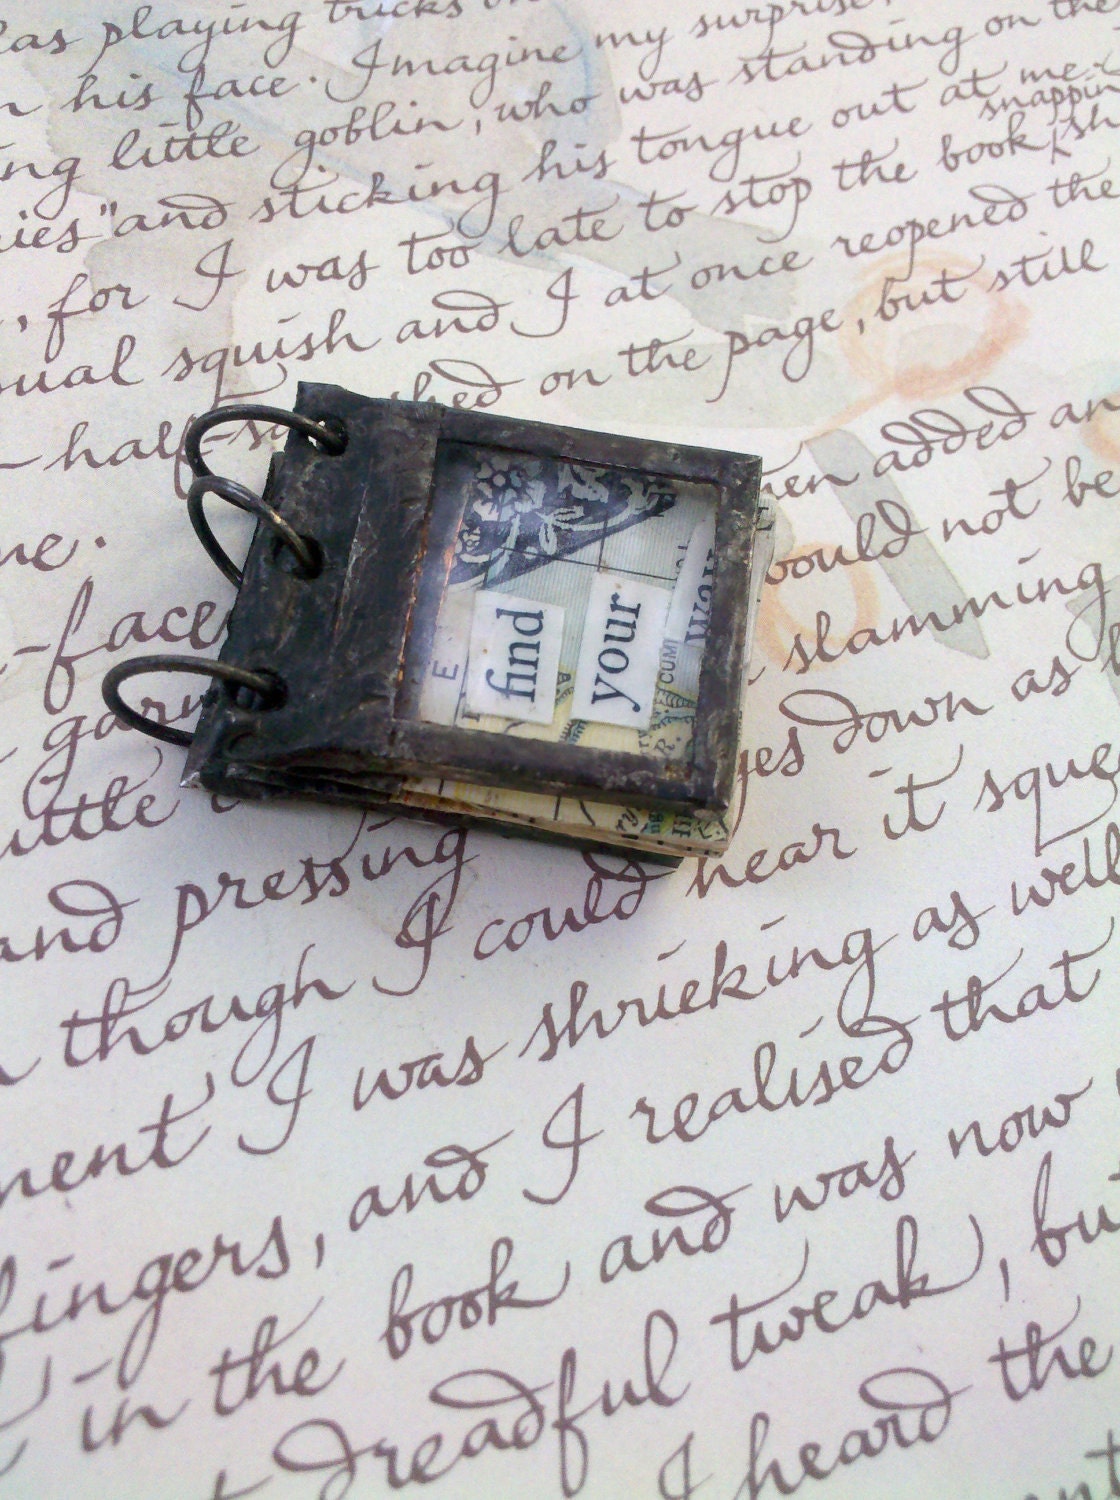 was playing tricks on
his face. Imagine my surprise,
little goblin, who was standing on the
and sticking his tongue out at me.
snappin
, for I was too late to stop the book
squish and I at once reopened the
half-squashed on the page, but still
added an
would not be
-face
slamming
little
down as
and pressing
though I could hear it sque
I was shrieking as well
fingers, and I realised that
in the book and was now
dreadful tweak), bu
I heard the
find
your
way
E
CUMI
R.